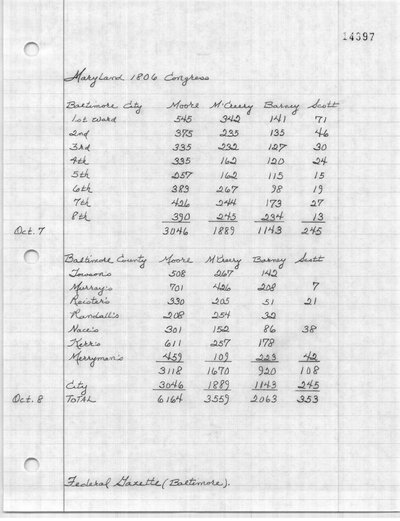 14397
Maryland 1806 Congress
Baltimore City Moore M'Creery Barney Scott
1st Ward 545 342 141 71
2nd 375 235 135 46
3rd 335 232 127 30
4th 335 162 120 24
5th 257 162 115 15
6th 383 267 98 19
7th 426 244 173 27
8th 390 245 234 13
Oct. 7 3046 1889 1143 245
Baltimore County Moore M'Creery Barney Scott
Towson's 508 267 142
Murray's 701 426 208 7
Reister's 330 205 51 21
Randall's 208 254 32
Nace's 301 152 86 38
Kerr's 611 257 178
Merryman's 459 109 223 42
3118 1670 920 108
City 3046 1889 1143 245
Oct. 8 TOTAL 6164 3559 2063 353
Federal Gazette (Baltimore).